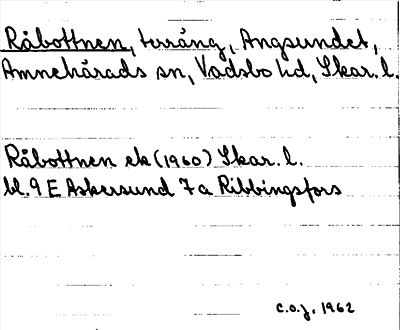 Råbottnen, terräng, Ängsundet,
Amnehärads sn, Vadsbo hd, Skar. l.
Råbottnen ek (1960) Skar. l.
bl. 9 E Askersund 7 a Ribbingsfors
C.O.J. 1962